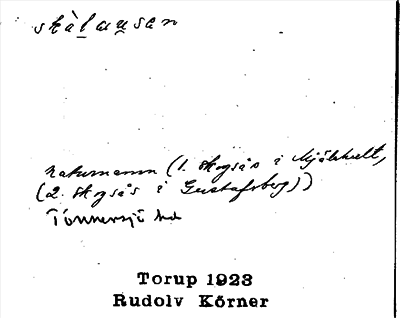 skàlau̲san
naturnamn (1. skogsås i Mjölkhult,
(2. skogsås i Gustafsberg))
Tönnersjö hd
Torup 1923
Rudolv Körner